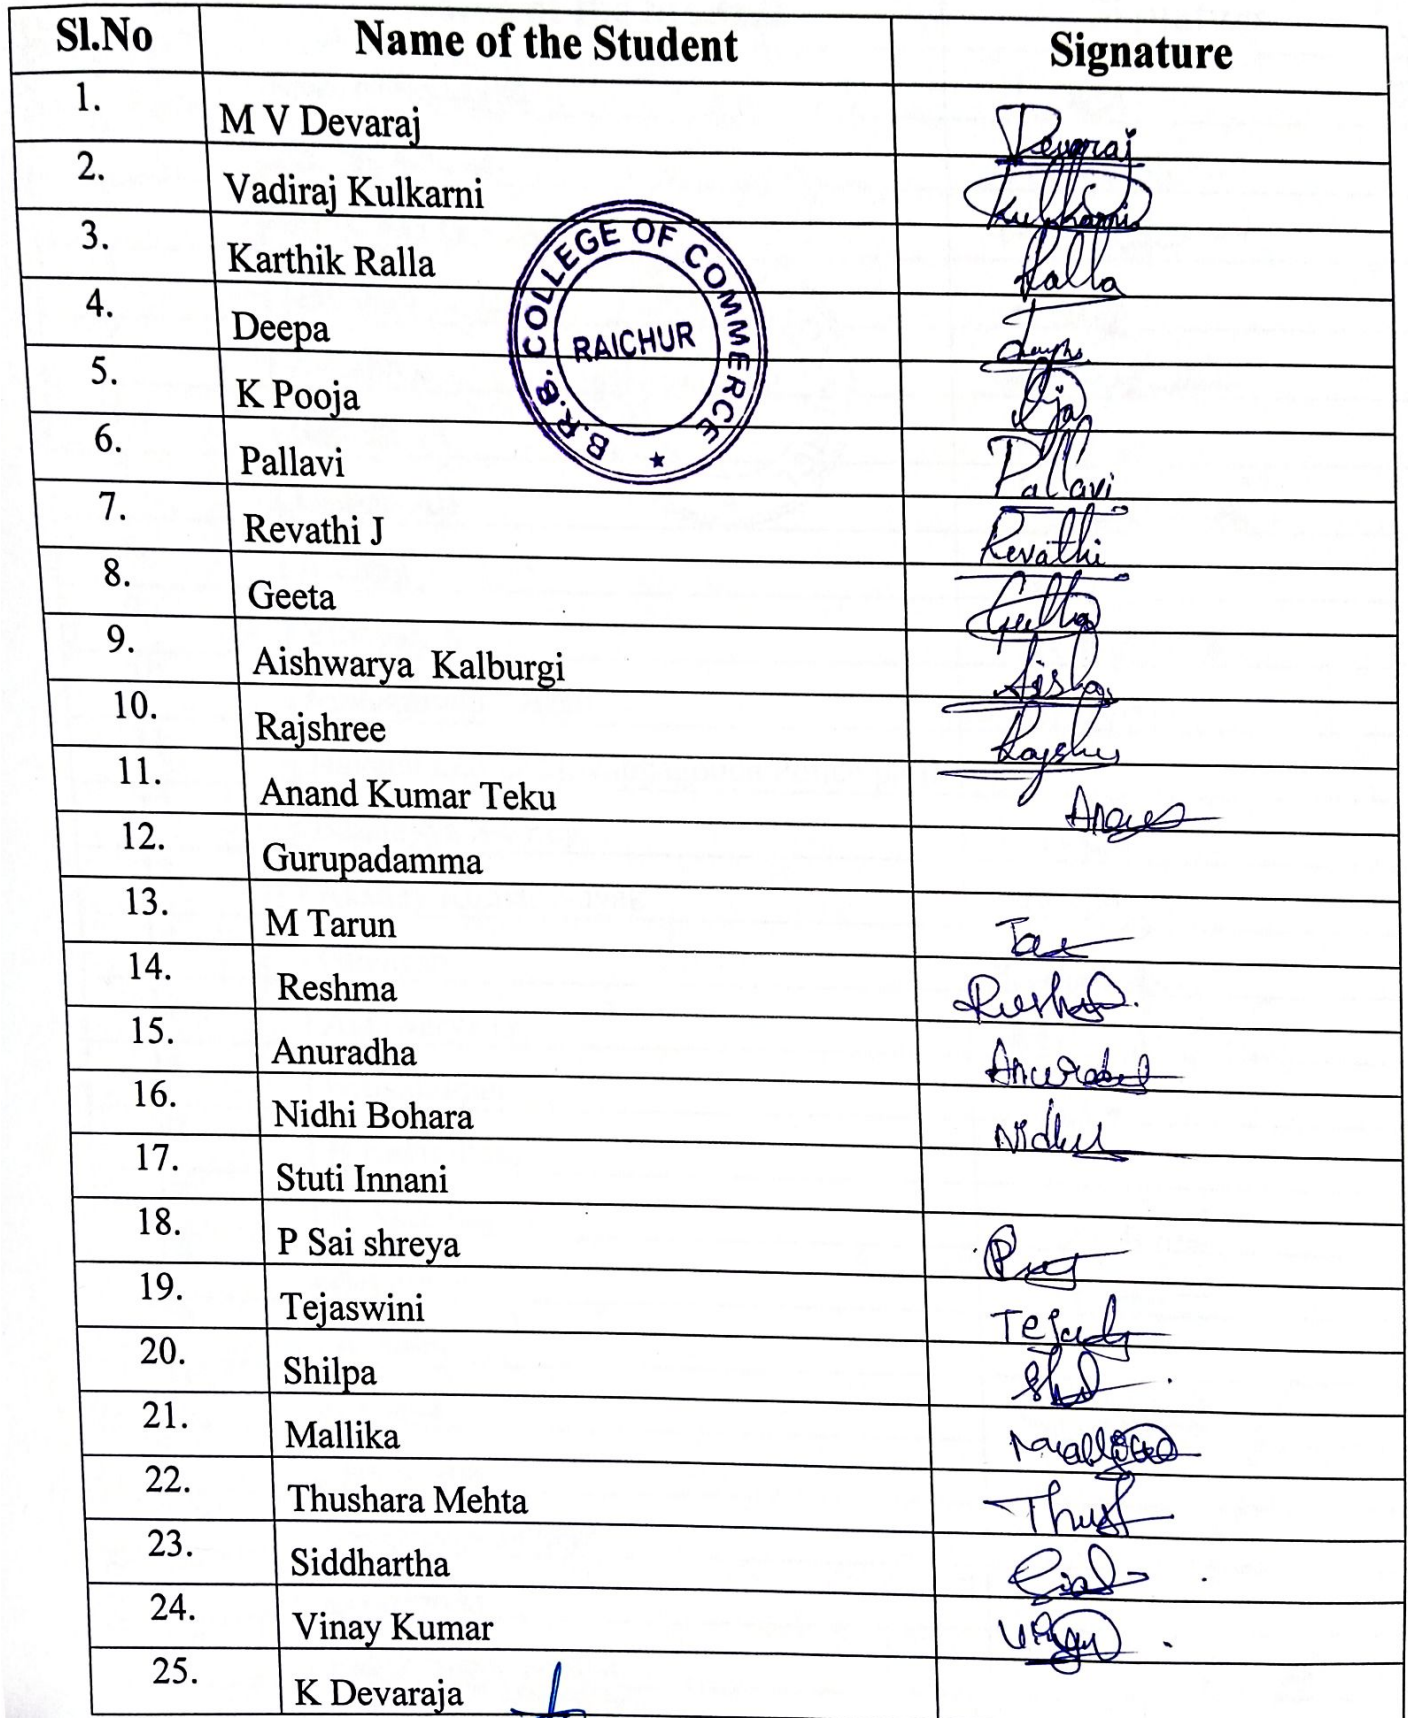 Sl.No Name of the Student Signature
1. M V Devaraj Devaraj
2. Vadiraj Kulkarni Kulkarni
3. Karthik Ralla Ralla
4. Deepa
5. K Pooja
6. Pallavi Pallavi
7. Revathi J Revathi
8. Geeta
9. Aishwarya Kalburgi
10. Rajshree
11. Anand Kumar Teku
12. Gurupadamma
13. M Tarun
14. Reshma
15. Anuradha
16. Nidhi Bohara
17. Stuti Innani
18. P Sai shreya
19. Tejaswini
20. Shilpa
21. Mallika
22. Thushara Mehta
23. Siddhartha
24. Vinay Kumar
25. K Devaraja
B.R.B. COLLEGE OF COMMERCE
RAICHUR